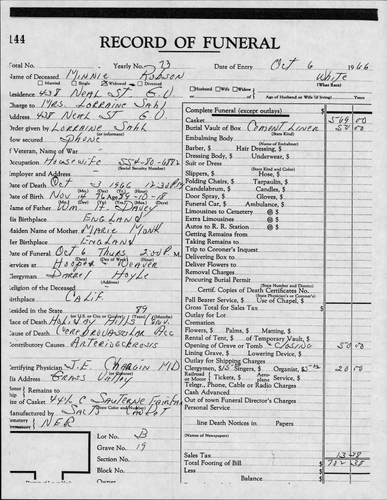 144
RECORD OF FUNERAL
Total No. Yearly No. 73 Date of Entry Oct 6 1966
Name of Deceased Minnie Robson White
Married Single Widowed Divorced (What Race)
Husband Wife Widow of Age of Husband or Wife (if living) Years
Residence 438 Neal St G.V.
Charge to Mrs. Lorraine Sahl
Address 438 Neal St G.V.
Order given by Lorraine Sahl
How secured Phone
If Veteran, Name of War
Occupation Housewife
(Social Security Number)
Employer and Address
Date of Death Oct 3 1966 12:30 A.M.
Date of Birth Nov 14
Name of Father Wm
His Birthplace England
Maiden Name of Mother Marie Monk
Her Birthplace England
Date of Funeral Oct 6 Thurs 2:00 P.M.
Services at Hooper Weaver
Clergyman Barret Hoyle
Religion of the Deceased
Birthplace Calif
Resided in the State 89
Place of Death Holiday Hills Conv.
Cause of Death Cerebrovascular Acc
Contributory Causes Arteriosclerosis
Certifying Physician J.E. Chargin MD
His Address Grass Valley
Remains to
Size of Casket
Manufactured by
Cemetery
Lot No. B
Grave No. 19
Section No.
Block No.
Owner
Complete Funeral (except outlays) $
Casket 569 00
Burial Vault of Box Cement Liner 50 00
Embalming Body
(Name of Embalmer)
Barber, $ Hair Dressing, $
Dressing Body, $ Underwear, $
Suit or Dress
Slippers, $ Hose, $
Folding Chairs, $ Tarpaulin, $
Candelabrum, $ Candles, $
Door Spray, $ Gloves, $
Funeral Car, $ Ambulance, $
Limousines to Cemetery @ $
Extra Limousines @ $
Autos to R. R. Station @ $
Getting Remains from
Taking Remains to
Trip to Coroner's Inquest
Delivering Box to
Deliver Flowers to
Removal Charges
Procuring Burial Permit
(State Number and District)
Certif. Copies of Death Certificates No.
(State Physician's or Coroner's)
Pall Bearer Service, $ Use of Chapel, $
Gross Total for Sales Tax $
Outlay for Lot
Cremation
Flowers, $ Palms, $ Matting, $
Rental of Tent, $ of Temporary Vault, $
Opening of Grave or Tomb & Closing 50 00
Lining Grave, $ Lowering Device, $
Outlay for Shipping Charges
Clergymen, $15 Singers, $ Organist, $ 20 00
Railroad or Motor Tickets, $ Aeroplane Service, $
Telegr., Phone, Cable or Radio Charges
Cash Advanced
Out of town Funeral Director's Charges
Personal Service
line Death Notices in Papers
(Names of Newspapers)
Sales Tax 13 38
Total Footing of Bill $ 702 38
Less
Balance $